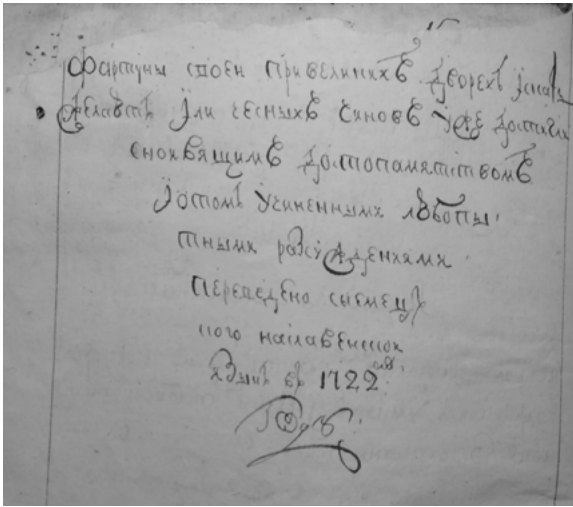 фартуны своеи привеликихъ дворехъ искали
желаютъ или чесныхъ чиновъ уже достигли
сноивящимъ достопамятствомъ
иотомъ учиненными любопы
тными разсуждениями
переведено снемец
кого наславенскои
языкъ въ 1722
году